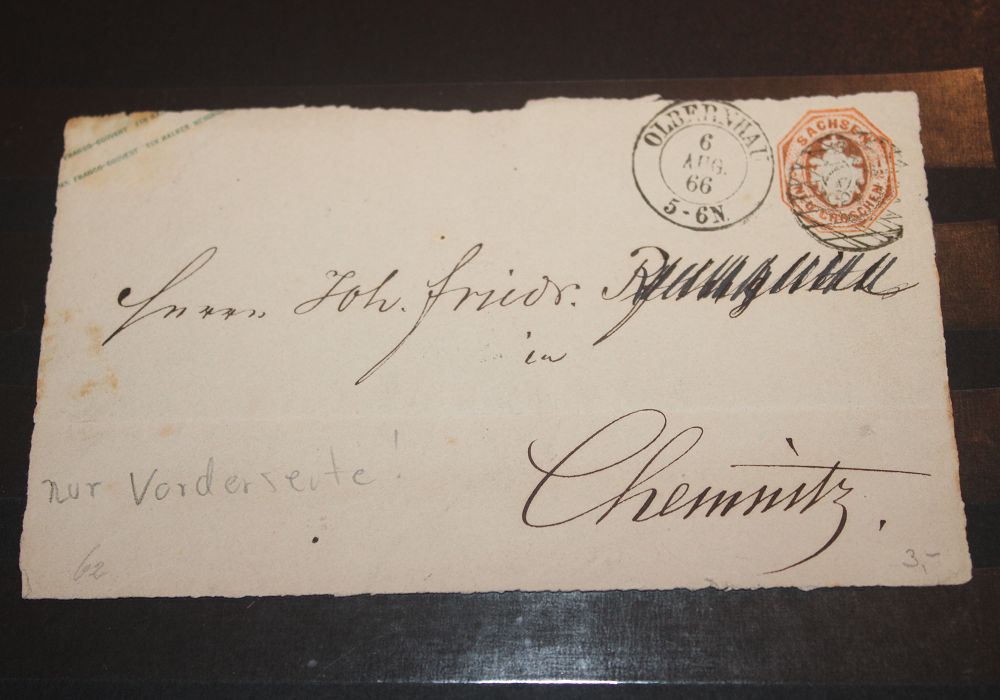 FRANCO-COUVERT
FRANCO-COUVERT EIN HALBER
OLBERNHAU
6
AUG.
66
5-6N.
SACHSEN
NEU-GROSCHEN
Herrn Joh. Friedr.
in
Chemnitz.
nur Vorderseite!
62
3,-